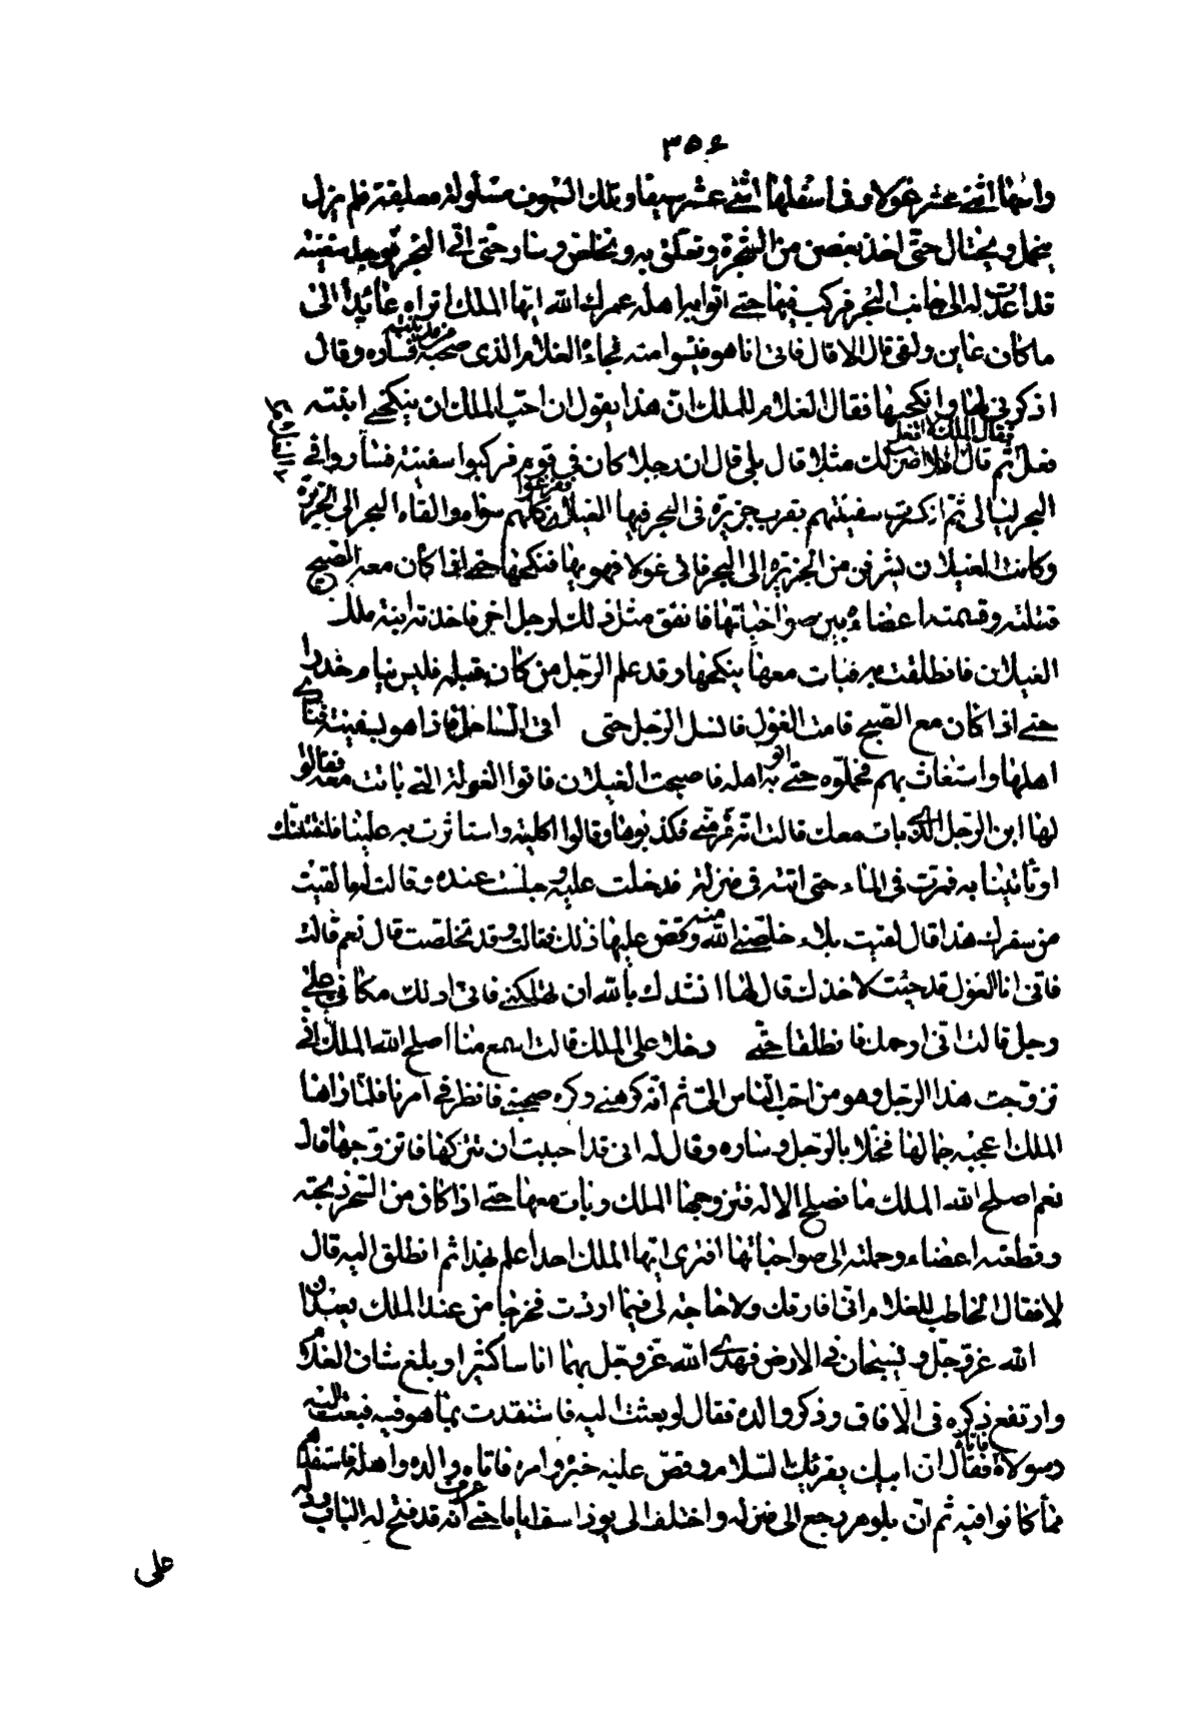 ٣٥٦
واسها اثنى عشر غولا وفى اسفلها اثنى عشر سيفا وتلك السيوف مسلولة معلقة فلم يزل
يتحمل ويحتال حتى اخذ بغصن من الشجرة وتعلق به وتخلص وسار حتى اتى البحر فوجد سفينة
قد اعدت له الى جانب البحر فركب فيها حتى اتوا به اهله عمرك الله ايها الملك اتراه عائدا الى
ما كان عاين ولقى قال لا قال فانى انا هو فيئسوا منه فجاء الغلام الذى صحبه من مدينته فساره وقال
اذكرنى لها وانكحنيها فقال الغلام للملك ان هذا يقول ان احب الملك ان ينكحنى ابنته
فعل فقال الملك لا افعل ثم قال الا اضرب لك مثلا قال بلى قال ان رجلا كان فى قوم فركبوا سفينة فساروا فى
البحر ليالى ثم انكسرت سفينتهم بقرب جزيرة فى البحر فيها الغيلان فغرقوا كلهم سواه والقاه البحر الى الجزيرة
وكانت الغيلان يشرفن من الجزيرة الى البحر فاتى غولا فهويها فنكحها حتى اذا كان مع الصبح
قتلته وقسمت اعضاءه بين صواحباتها فاتفق مثل ذلك لرجل اخر فاخذته ابنة ملك
الغيلان فانطلقت به فبات معها ينكحها وقد علم الرجل من كان قبله فليس ينام حذرا
حتى اذا كان مع الصبح قامت الغول فانسل الرجل حتى اتى الساحل فاذا هو بسفينة فنادى
اهلها واستغاث بهم فحملوه حتى اتوا به اهله فاصبحت الغيلان فاتوا الغولة التى باتت معه فقالوا
لها اين الرجل الذى بات معك قالت انه فر منى فكذبوها وقالوا اكلته واستاثرت به علينا فلنقتلنك
او تاتينا به فمرت فى الماء حتى اتته فى منزله فدخلت عليه وجلست عنده وقالت له ما لقيت
من سفرك هذا قال لقيت بلاء خلصنى الله منه وقص عليها ذلك فقالت وقد تخلصت قال نعم قالت
فانى انا الغول قد جئت لاخذك قال لها انشدك بالله ان تهلكنى فانى ادلك مكانى على
رجل قالت انى ارحمك فانطلقا حتى دخلا على الملك قالت اسمع منا اصلح الله الملك انى
تزوجت هذا الرجل وهو من احب الناس الى ثم انه كرهنى وكره صحبتى فانظر فى امرنا فلما راها
الملك اعجبه جمالها فخلا بالرجل وساره وقال له انى قد احببت ان تتركها فاتزوجها قال
نعم اصلح الله الملك ما تصلح الا له فتزوجها الملك وبات معها حتى اذا كان من السحر ذبحته
وقطعت اعضاءه وحملته الى صواحباتها افترى ايها الملك احدا علم بهذا ثم انطلق اليه قال
لا فقال الخاطب للغلام انى افارقك ولا حاجة لى فيما اردت فخرجا من عند الملك يعبدان
الله عز وجل ويسيحان فى الارض فهدى الله عز وجل بهما اناسا كثيرا وبلغ شان الغلام
وارتفع ذكره فى الافاق وذكر والده فقال لو بعثت اليه فاستنقذت مما هو فيه فبعث اليه
رسولا فاتاه فقال ان ابنك يقرئك السلام وقص عليه خبره وامره فاتاه والده واهله فاستنقذهم
مما كانوا فيه ثم ان بلوهر رجع الى منزله واختلف الى يوذاسف اياما حتى عرف انه قد فتح له الباب ودله
على